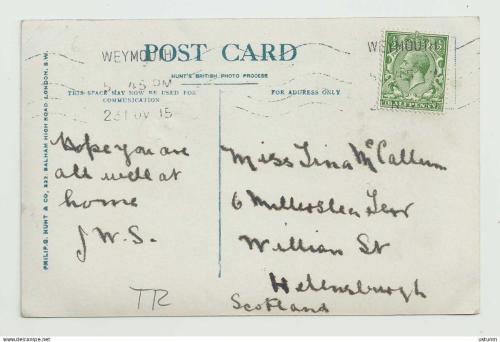 POST CARD
HUNT'S BRITISH PHOTO PROCESS
THIS SPACE MAY NOW BE USED FOR
COMMUNICATION
FOR ADDRESS ONLY
WEYMOUTH
45 PM
15
WEYMOUTH
HALFPENNY
Hope you are
all well at
home
J W.S.
TR
Miss Tina McCallum
6 Terr
William St
Helensburgh
Scotland
PHILIP G. HUNT & CO, 332, BALHAM HIGH ROAD, LONDON, S.W.